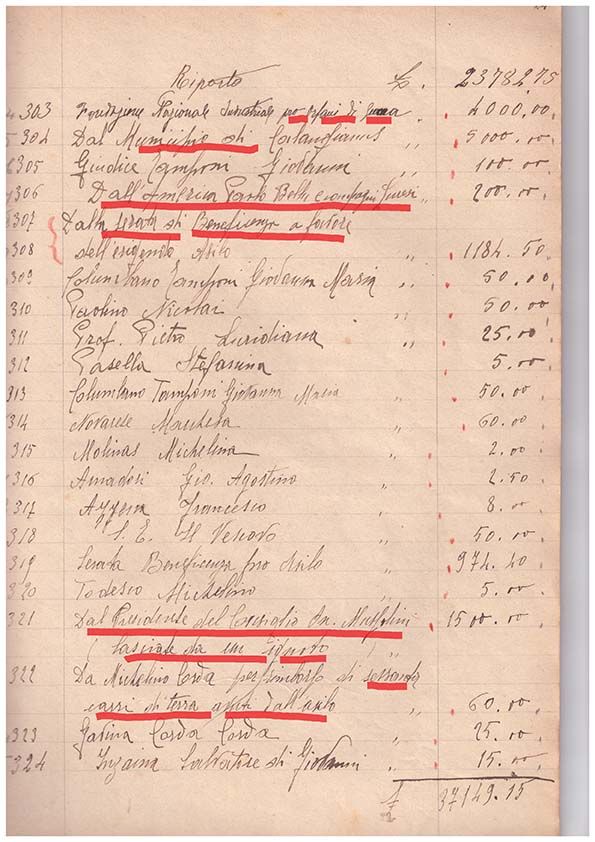 Riporto £. 23782.75
303 Fondazione Nazionale Industriale pro Orfani di Guerra „ 4000.00
304 Dal Municipio di Calangianus „ 5000.00
305 Giudice Tamponi Giovanni „ 100.00
306 Dall'America Paolo Beltr e compagni „ 200.00
307 Dalla Serata di Beneficenza a favore
308 dell'erigendo Asilo „ 1184.50
309 Columbano Tamponi Giovanna Maria „ 50.00
310 Paolino Nicolai „ 50.00
311 Prof. Pietro Luridiana „ 25.00
312 Casella Stefanina „ 5.00
313 Columbano Tamponi Giovanna Maria 50.00
314 Novarese Marchesa „ 60.00
315 Molinas Michelina „ 2.00
316 Amadesi Gio. Agostino „ 2.50
317 Azzena Francesco „ 8.00
318 S. E. Il Vescovo „ 50.00
319 Serata Beneficenza pro Asilo „ 974.40
320 Todesco Michelino „ 5.00
321 Dal Presidente del Consiglio On. Mussolini 1500.00
( lasciate da un ignoto ) „
322 Da Michelino Corda per rimborso di sessanta
carri di terra avuti dall'asilo „ 60.00
323 Gavina Corda Corda „ 25.00
324 Inzaina Salvatore di Giovanni „ 15.00
£ 37149.15